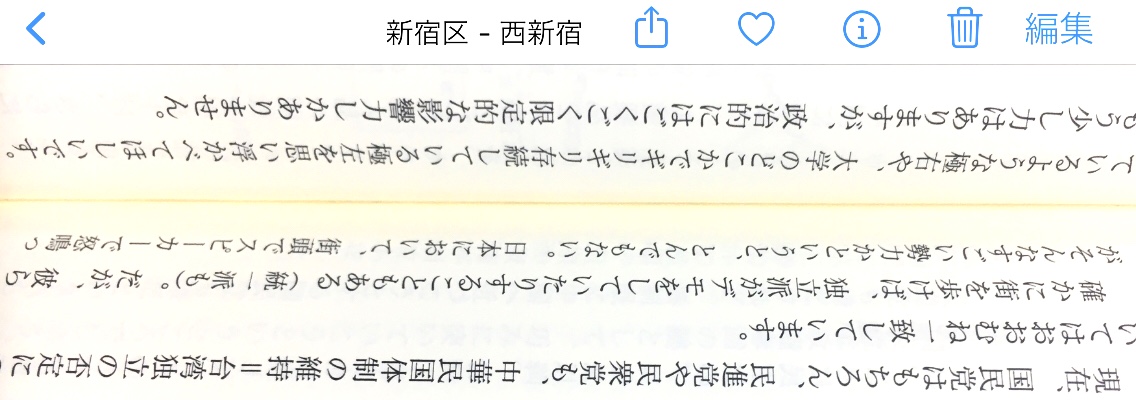 新宿区 - 西新宿
編集
現在、国民党はもちろん、民進党や民衆党も、中華民国体制の維持＝台湾独立の否定につ
いてはおおむね一致しています。
確かに街を歩けば、独立派がデモをしていたりすることもある（統一派も）。だが、彼ら
がそんなすごい勢力かというと、とんでもない。日本において、街頭でスピーカーで怒鳴っ
ているような極右や、大学のどこかでギリギリ存続している極左を思い浮かべてほしいです。
もう少し力はありますが、政治的にはごくごく限定的な影響力しかありません。